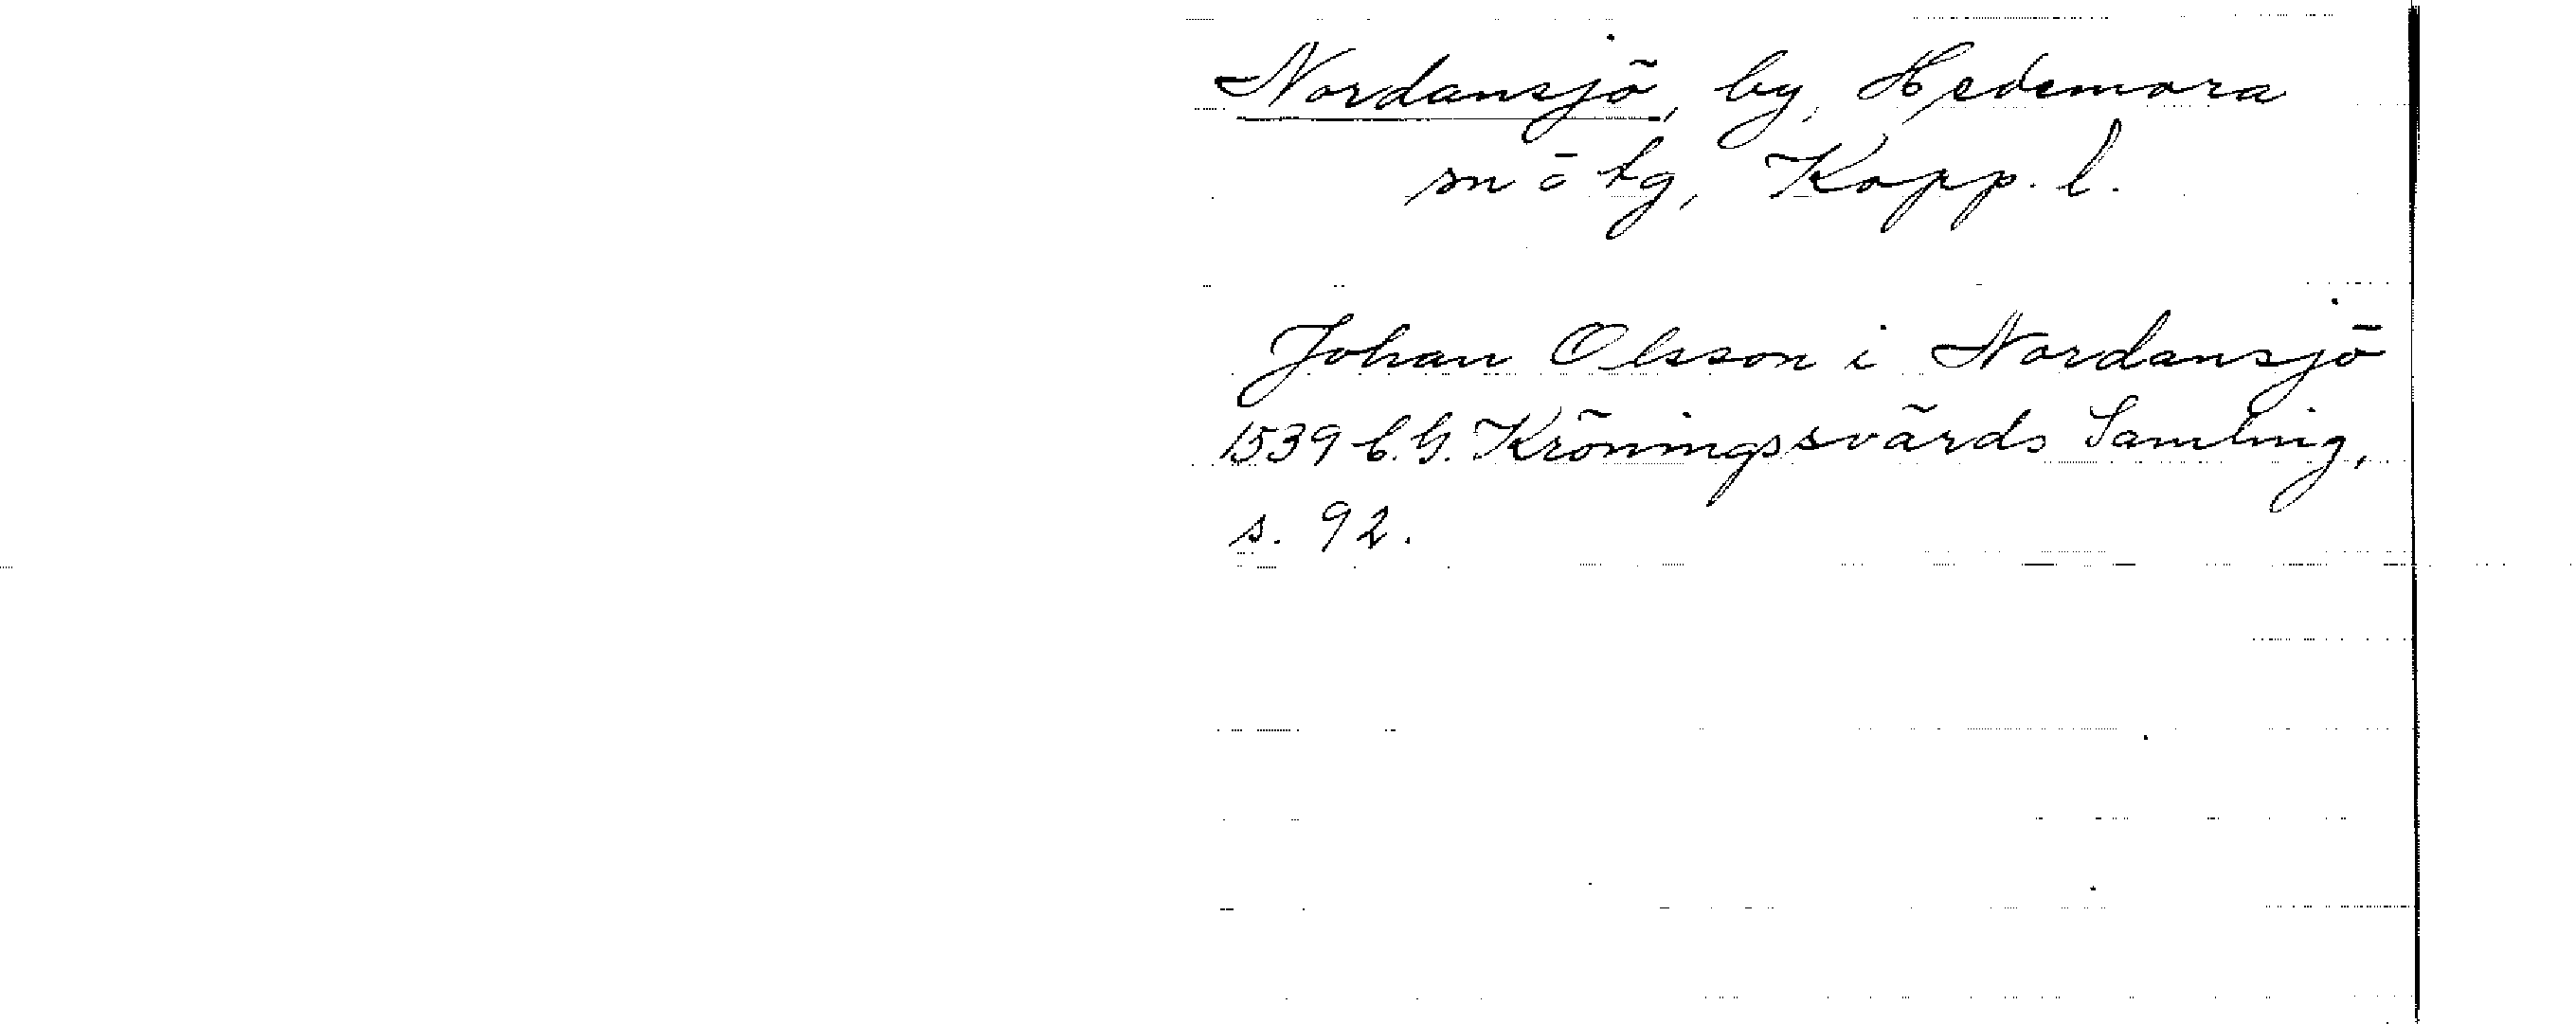 Nordansjö, by, Hedemora
sn o tg, Kopp. l.
Johan Olsson i Nordansjö
1539 C.G. Kröningssvärds Samling,
s. 92.